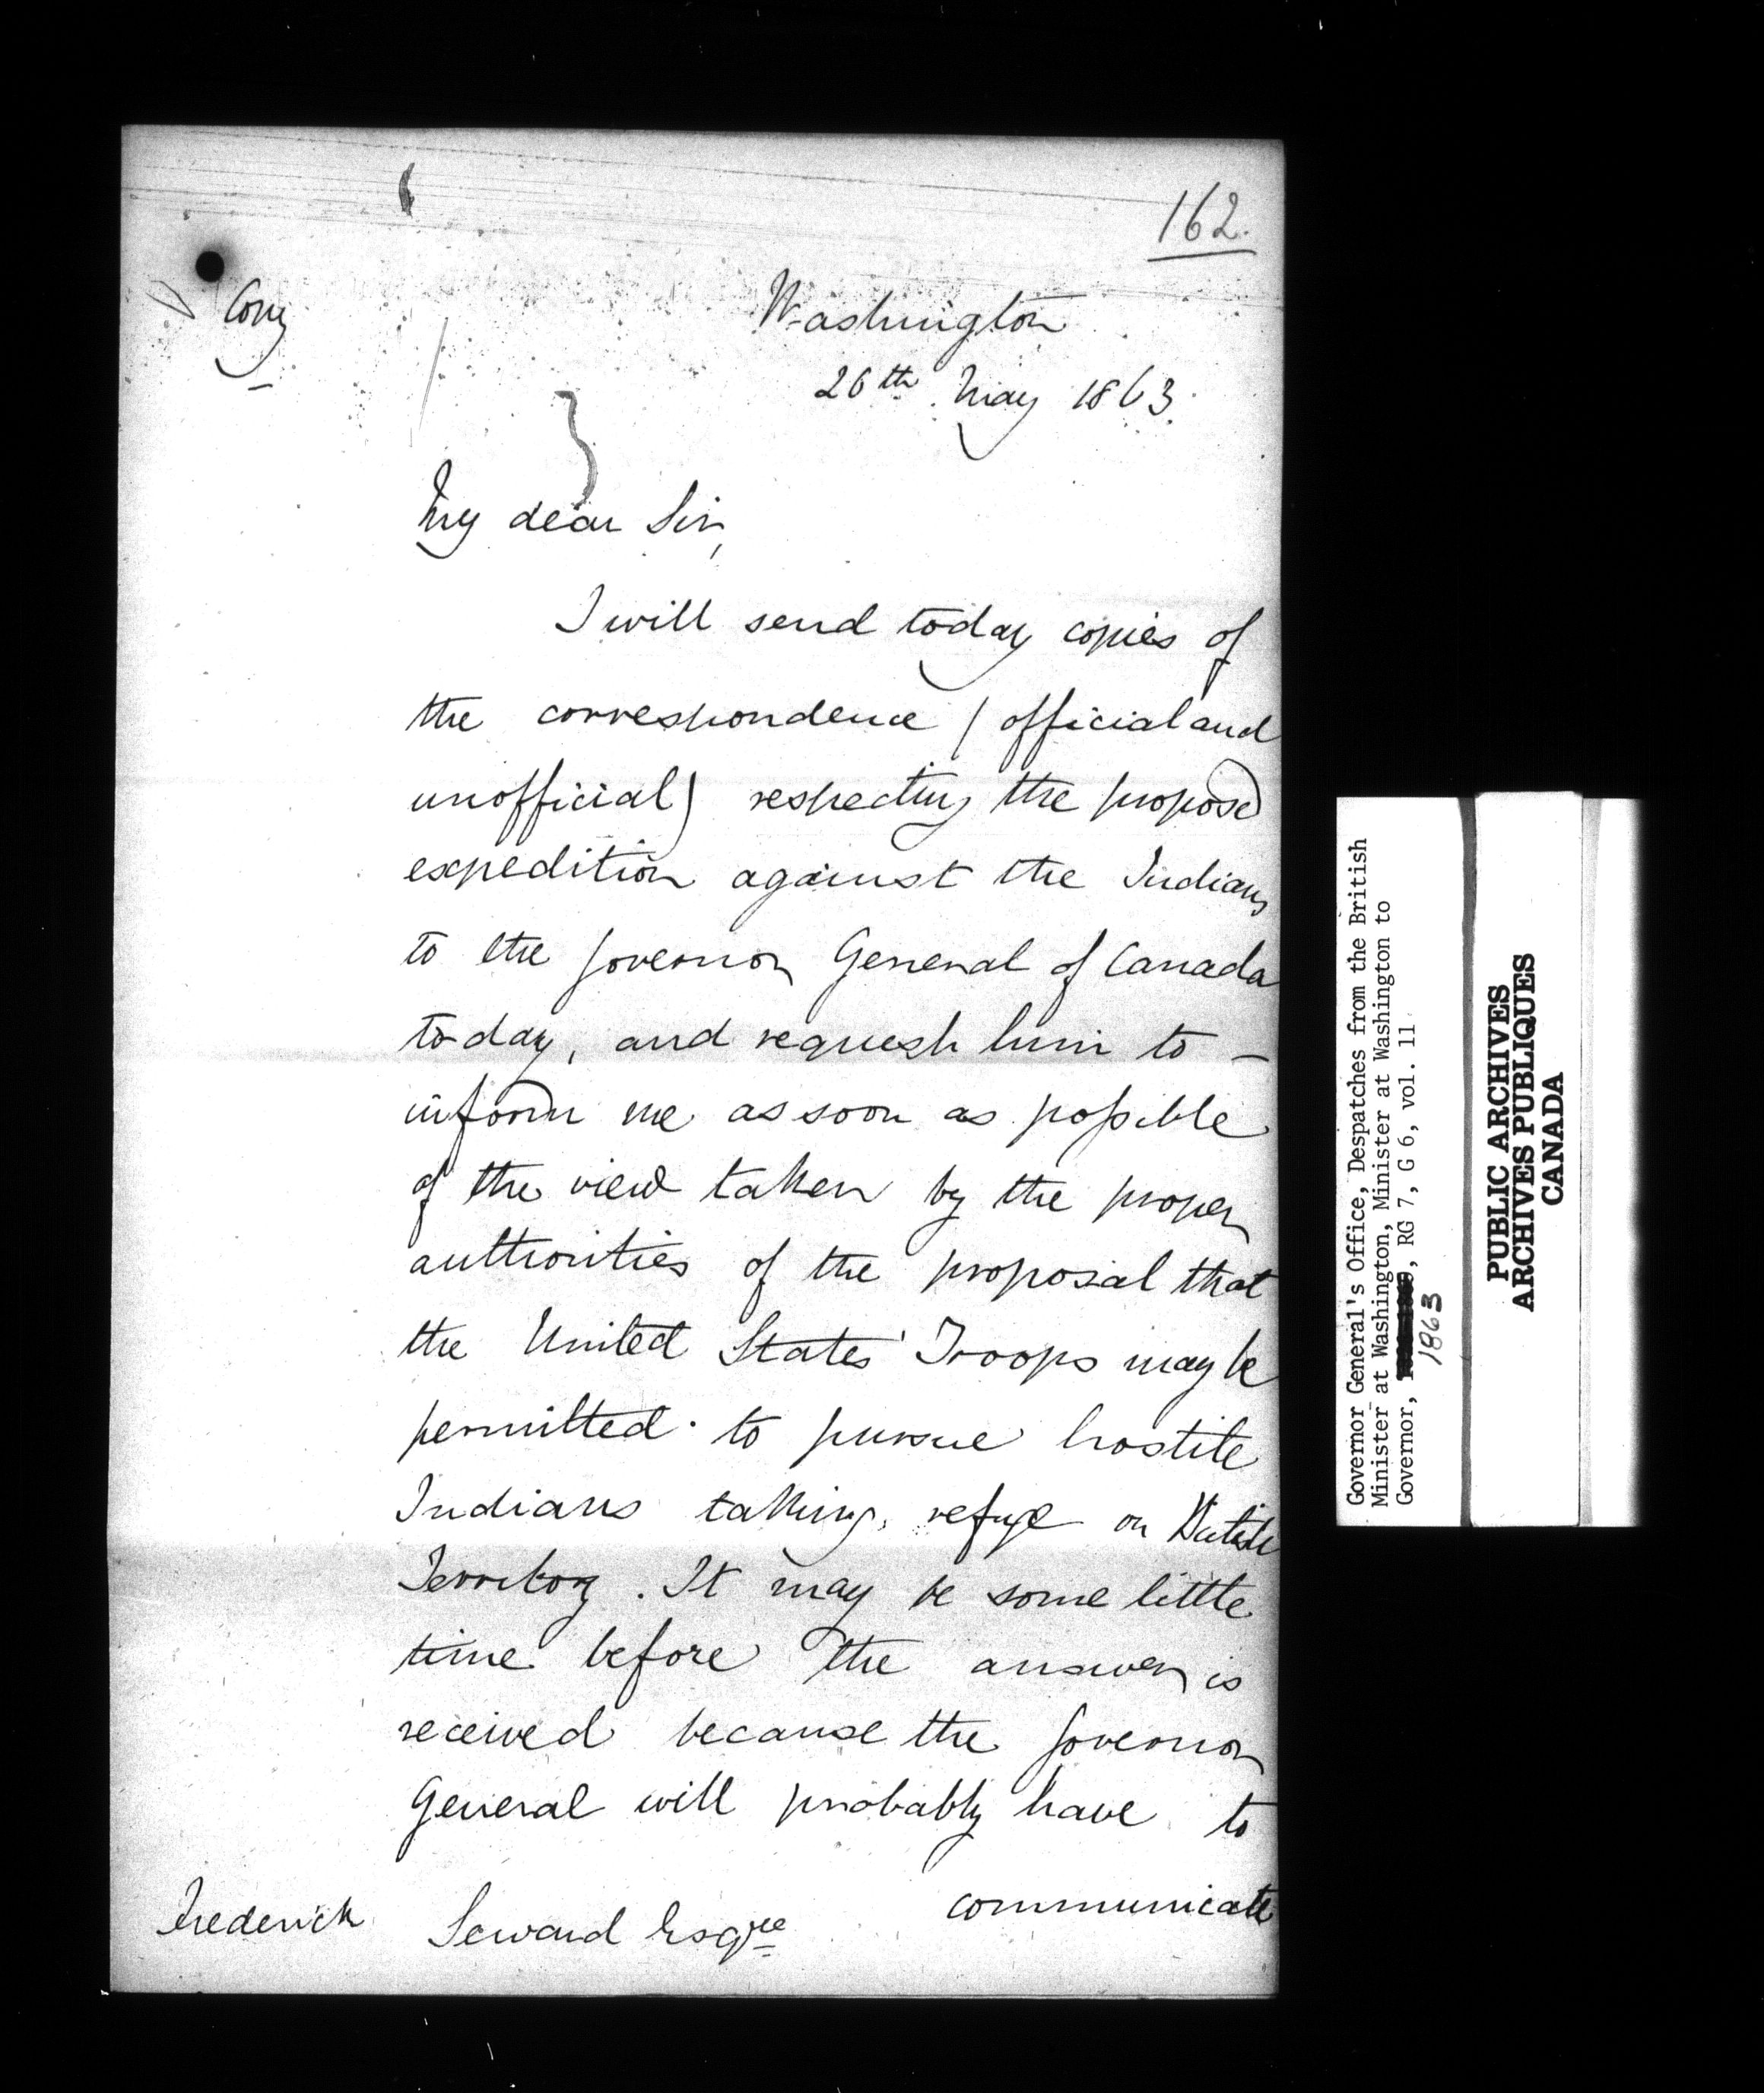 162.
Copy
Washington
26th May 1863.
My dear Sir,
I will send today copies of
the correspondence (official and
unofficial) respecting the proposed
expedition against the Indians
to the Governor General of Canada
today, and request him to –
inform me as soon as possible
of the view taken by the proper
authorities of the proposal that
the United States' Troops may be
permitted to pursue hostile
Indians taking refuge on British
Territory. It may be some little
time before the answer is
received because the Governor
General will probably have to
communicate
Frederick Seward Esqre
Governor General's Office, Despatches from the British
Minister at Washington, Minister at Washington to
Governor, , RG 7, G 6, vol. 11
1863
PUBLIC ARCHIVES
ARCHIVES PUBLIQUES
CANADA